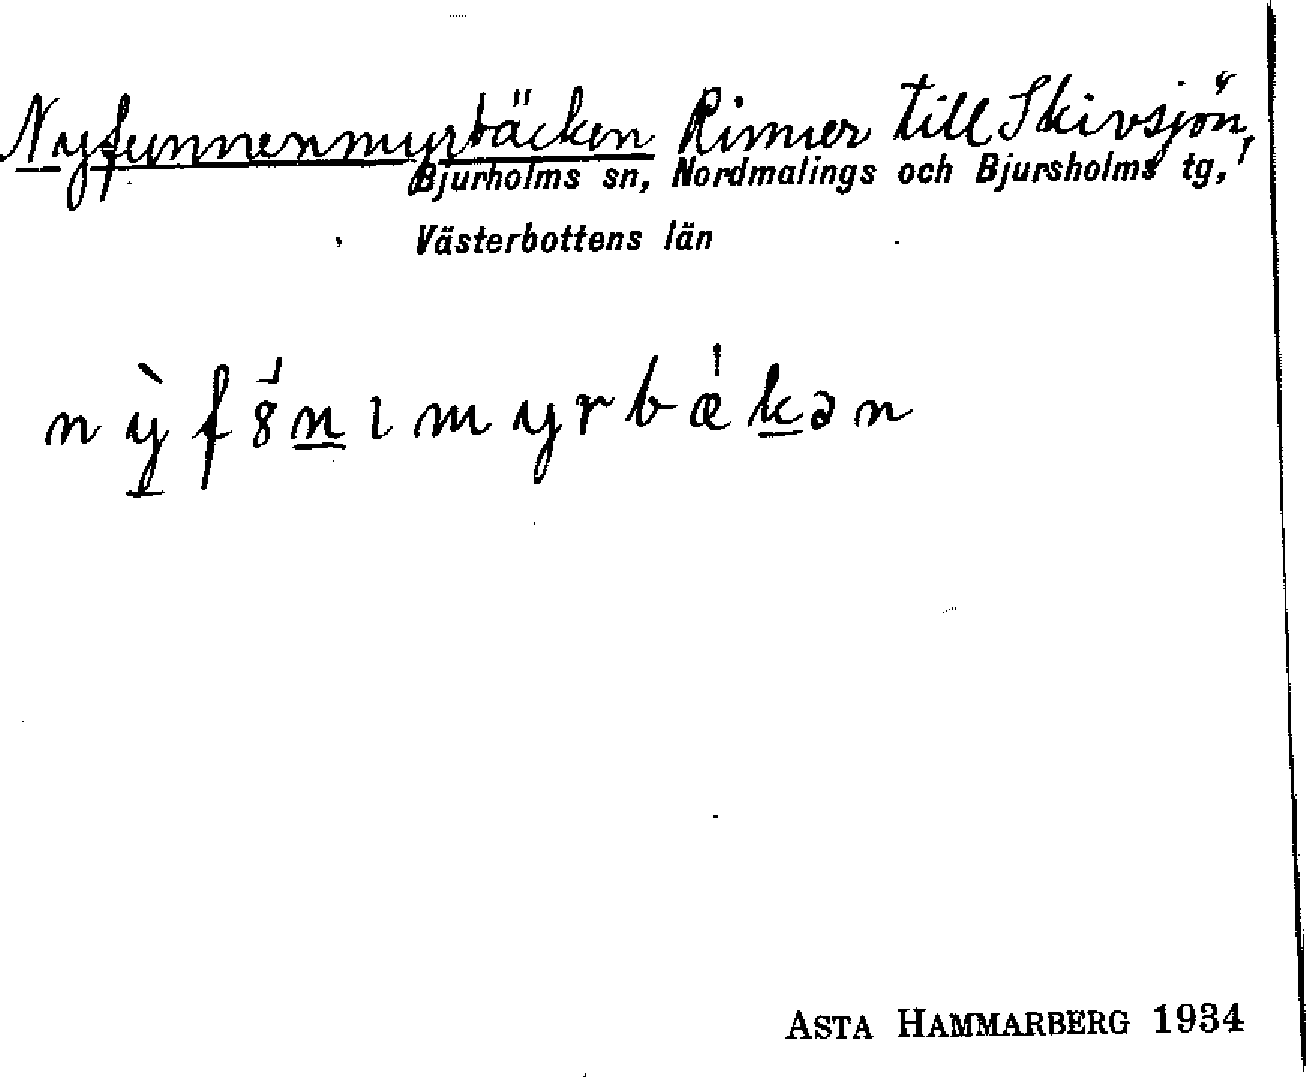 Nyfunnenmyrbäcken Rinner till Skivsjön,
Bjurholms sn, Nordmalings och Bjursholms tg,
Västerbottens län
nỳf8nımyrbækən
ASTA HAMMARBERG 1934